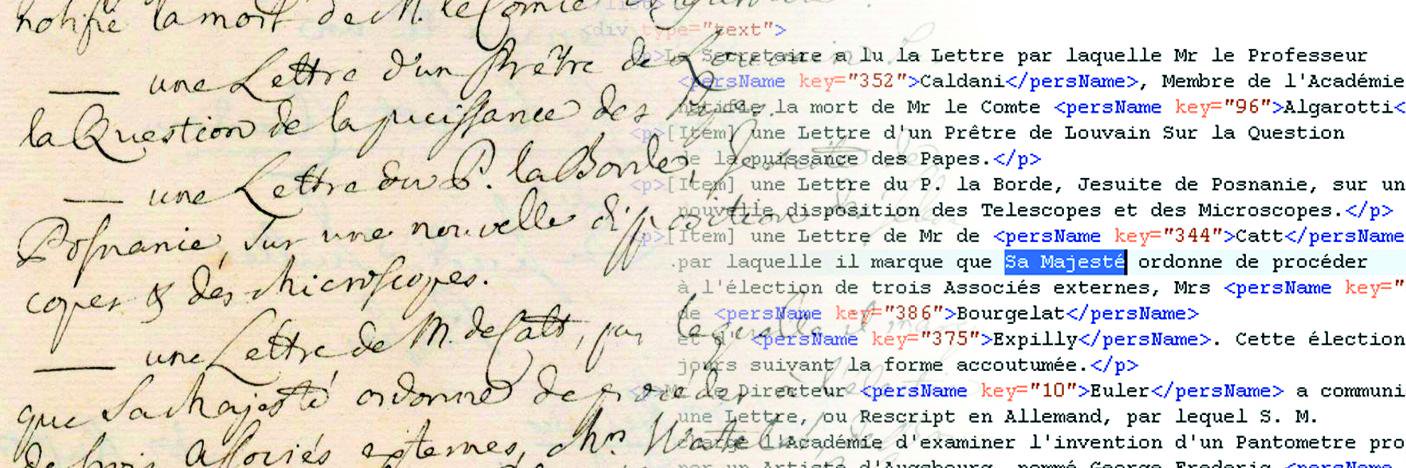 notifie la mort de M. le Comte
— une Lettre d'un Prêtre de Louvain
la Question de la puissance des Papes.
— une Lettre du P. la Borde, Jesuite
Posnanie, sur une nouvelle disposition
copes & des Microscopes.
— une Lettre de M. de Catt, par laquelle il
que Sa Majesté ordonne de proceder
de trois Associés externes, Mrs Watelet
<div type="text">
<p>Le Secretaire a lu la Lettre par laquelle Mr le Professeur
<persName key="352">Caldani</persName>, Membre de l'Académie
notifie la mort de Mr le Comte <persName key="96">Algarotti<
<p>[Item] une Lettre d'un Prêtre de Louvain Sur la Question
de la puissance des Papes.</p>
<p>[Item] une Lettre du P. la Borde, Jesuite de Posnanie, sur un
nouvelle disposition des Telescopes et des Microscopes.</p>
<p>[Item] une Lettre de Mr de <persName key="344">Catt</persName
par laquelle il marque que Sa Majesté ordonne de procéder
à l'élection de trois Associés externes, Mrs <persName key="
de <persName key="386">Bourgelat</persName>
et d' <persName key="375">Expilly</persName>. Cette élection
jours suivant la forme accoutumée.</p>
<p>Mr le Directeur <persName key="10">Euler</persName> a communi
une Lettre, ou Rescript en Allemand, par lequel S. M.
charge l'Académie d'examiner l'invention d'un Pantometre pro
par un Artiste d'Augsbourg, nommé George Frederic <persName